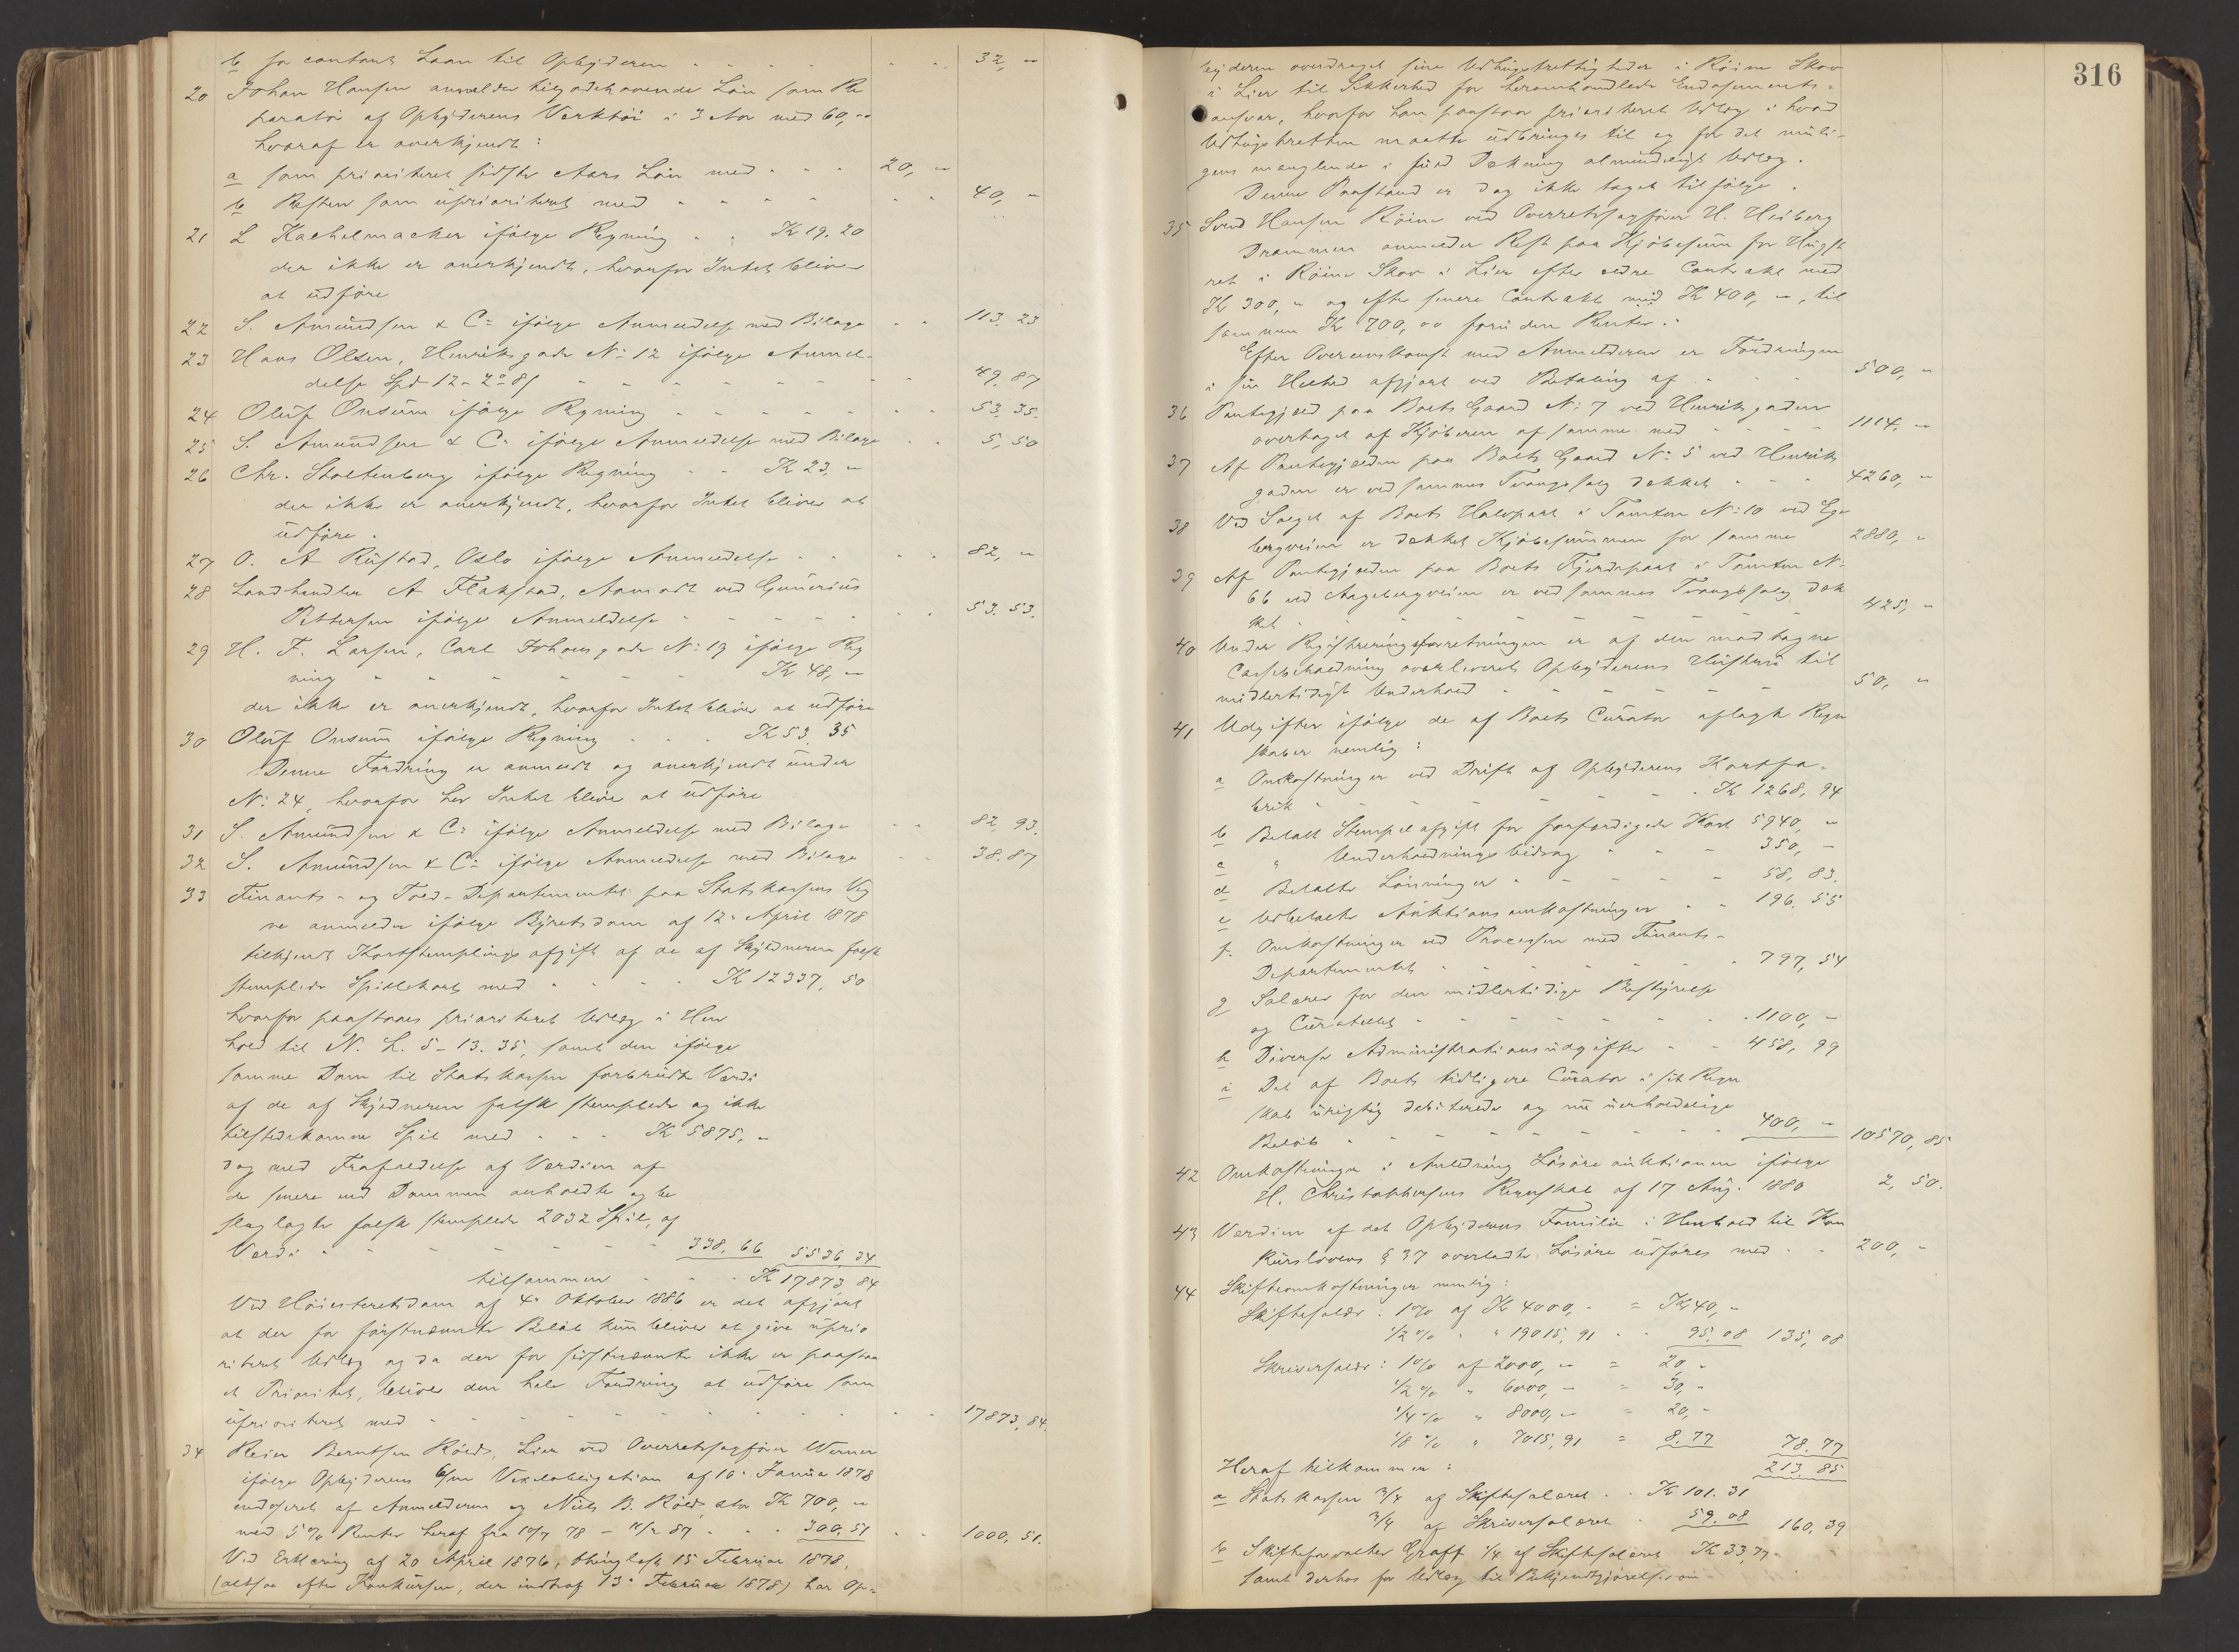 b for contant Laan til Opbyderen - - - - - 32, "
20 Johan Hansen anmelder tilgodehavende Løn som Re
paratør af Opbyderens Verktøi i 3 Aar med 60, "
hvoraf er anerkjendt:
a som prioriteret sidste Aars Løn med - - - 20, "
b Resten som uprioriteret med - - - - - 40, "
21 L Kachelmacher ifølge Regning - - K 19. 20
der ikke er anerkjendt, hvorfor Intet bliver
at udføre
22 S. Amundsen & Co ifølge Anmeldelse med Bilage - - 113. 23
23 Hans Olsen, Henriksgade No 12 ifølge Anmel-
delse Spd 12 - 2 - 81 - - - - - - 49. 87
24 Oluf Onsum ifølge Regning - - - - - - 53. 35.
25 S. Amundsen & Co ifølge Anmeldelse med Bilage - - 5, 50
26 Chr. Stoltenberg ifølge Regning - - K 23, "
der ikke er anerkjendt, hvorfor Intet bliver at
udføre.
27 O. A Rustad, Oslo ifølge Anmeldelse - - - - 82, "
28 Landhandler A Flakstad, Aamodt ved Gunerius
Pettersen ifølge Anmeldelse - - - - - 53. 53.
29 H. F. Larsen, Carl Johansgade No 19 ifølge Reg
ning - - - - - - K 48, "
der ikke er anerkjendt, hvorfor Intet bliver at udføre
30 Oluf Onsum ifølge Regning - - - K 53. 35
Denne Fordring er anmeldt og anerkjendt under
No 24, hvorfor her Intet bliver at udføre
31 S. Amundsen & Co ifølge Anmeldelse med Bilage - - 82, 93.
32 S. Amundsen & Co ifølge Anmeldelse med Bilage - - 38. 87
33 Finants- og Told-Departementet paa Statskassens Veg
ne anmelder ifølge Byretsdom af 12 April 1878
tilkjendt Kortstemplingsafgift af de af Skyldneren falsk
stemplede Spillekort med - - - - K 12337, 50
hvorfor paastaaes prioriteret Udlæg i Hen
hold til N. L. 5-13. 35, samt den ifølge
samme Dom til Statskassen forbrudte Værdi
af de af Skyldneren falsk stemplede og ikke
tilstedekomne Spil med - - - K 5875, "
dog med Frafaldelse af Værdien af
de senere end Dommen anholdte og be
slaglagte falsk stemplede 2032 Spil, af
Værdi - - - - - - 338. 66 5536, 34
tilsammen - - - K 17873, 84
Ved Høiesteretsdom af 4 Oktober 1886 er det afgjort
at der for førstnævnte Beløb kun bliver at give uprio
riteret Udlæg og da der for sidstnævnte ikke er paastaa
et Prioritet, bliver den hele Fordring at udføre som
uprioriteret med - - - - - - - - - 17873, 84.
34 Reier Berntsen Røed, Lier ved Overretssagfører Werner
ifølge Opbyderens Vexelobligation af 10 Januar 1878
endosseret af Anmelderen og Niels B. Røed, stor K 700, "
med 5% Renter heraf fra 10/7 78 - 87 - - - 300. 51 - - 1000, 51.
Ved Erklæring af 20 April 1876, thinglæst 15 Februar 1878,
(altsaa efter Konkursen, der indtraf 13 Februar 1878) har Op=
316
byderen overdraget sine Udhugstrettigheder i Röine Skov
i Lier til Sikkerhed for heromhandlede Endossements=
ansvar, hvorfor han paastaar prioriteret Udlæg i hvad
Udhugstretten maatte udbringes til og for det muli-
gens manglende i fuld Dækning almindeligt Udlæg.
Denne Paastand er dog ikke taget tilfølge.
35 Svend Hansen Röine ved Overretssagfører H. Heiberg
Drammen anmelder Rest paa Kjøbesum for Hugst
ret i Röine Skov i Lier efter ældre Contrakt med
K 300, " og efter senere Contrakt med K 400, ", til
sammen K 700, " foruden Renter.
Efter Overenskomst med Anmelderen er Fordringen
i sin Helhed afgjort ved Betaling af - - - 500, "
36 Pantegjæld paa Boets Gaard No 7 ved Henriksgaden
overtaget af Kjøberen af samme med - - - - 1114. "
37 Af Pantegjælden paa Boets Gaard No 5 ved Henriks
gaden er ved sammes Tvangssalg dækket - - - 4260, "
38 Ved Salget af Boets Halvpart i Tomten No 10 ved Ege
bergveien er dækket Kjøbesummen for samme 2880, "
39 Af Pantegjælden paa Boets Fjerdepart i Tomten No
66 ved Aagebergveien er ved sammes Tvangssalg dæk
ket - - - - - - - - - 425, "
40 Under Registreringsforretningen er af den modtagne
Cassebeholdning overleveret Opbyderens Hustru til
midlertidigt Underhold - - - - - - 50, "
41 Udgifter ifølge de af Boets Curator aflagte Regn
skaber nemlig:
a Omkostninger ved Drift af Opbyderens Kortfa-
brik - - - - - - - K 1268, 94
b Betalt Stempelafgift for forfærdigede Kort 5940, "
c " Underholdningsbidrag - - - 350, -
d Betalte Lønninger - - - - - 58, 83.
e Udbetalte Auktionsomkostninger - - 196. 55
f. Omkostninger ved Processen med Finants-
Departementet - - - - - - 797, 54
g Salærer for den midlertidige Bestyrelse
og Curatellet - - - - - - 1100, -
h Diverse Administrationsudgifter - - 458, 99
i Det af Boets tidligere Curator i sit Regn
skab urigtig debiterede og nu uerholdelige
Beløb - - - - - - - - 400, - 10570, 85
42 Omkostninger i Anledning Løsøreauktionen ifølge
H. Christophersens Regnskab af 17 Aug. 1880 2, 50.
43 Værdien af det Opbyderens Familie i Henhold til Kon
kurslovens § 37 overladte Løsøre udføres med - - 200, -
44 Skifteomkostninger nemlig:
Skiftesalær: 1% af K 4000, - = K 40, -
1/2 % " " 19015, 91 - - 95, 08 135, 08
Skriversalær: 1% af 2000, - = 20, -
1/2 % " 6000, - = 30, -
1/4 % " 8000, - = 20, -
1/8 % " 7015, 91 = 8. 77 78. 77
Heraf tilkommer: 213. 85
a Statskassen 3/4 af Skiftesalæret - - K 101. 31
3/4 af Skriversalæret - 59. 08 160, 39
b Skifteforvalter Graff 1/4 af Skiftesalæret K 33, 77-
samt derhos for Udlæg til Bekjendtgjørelse om